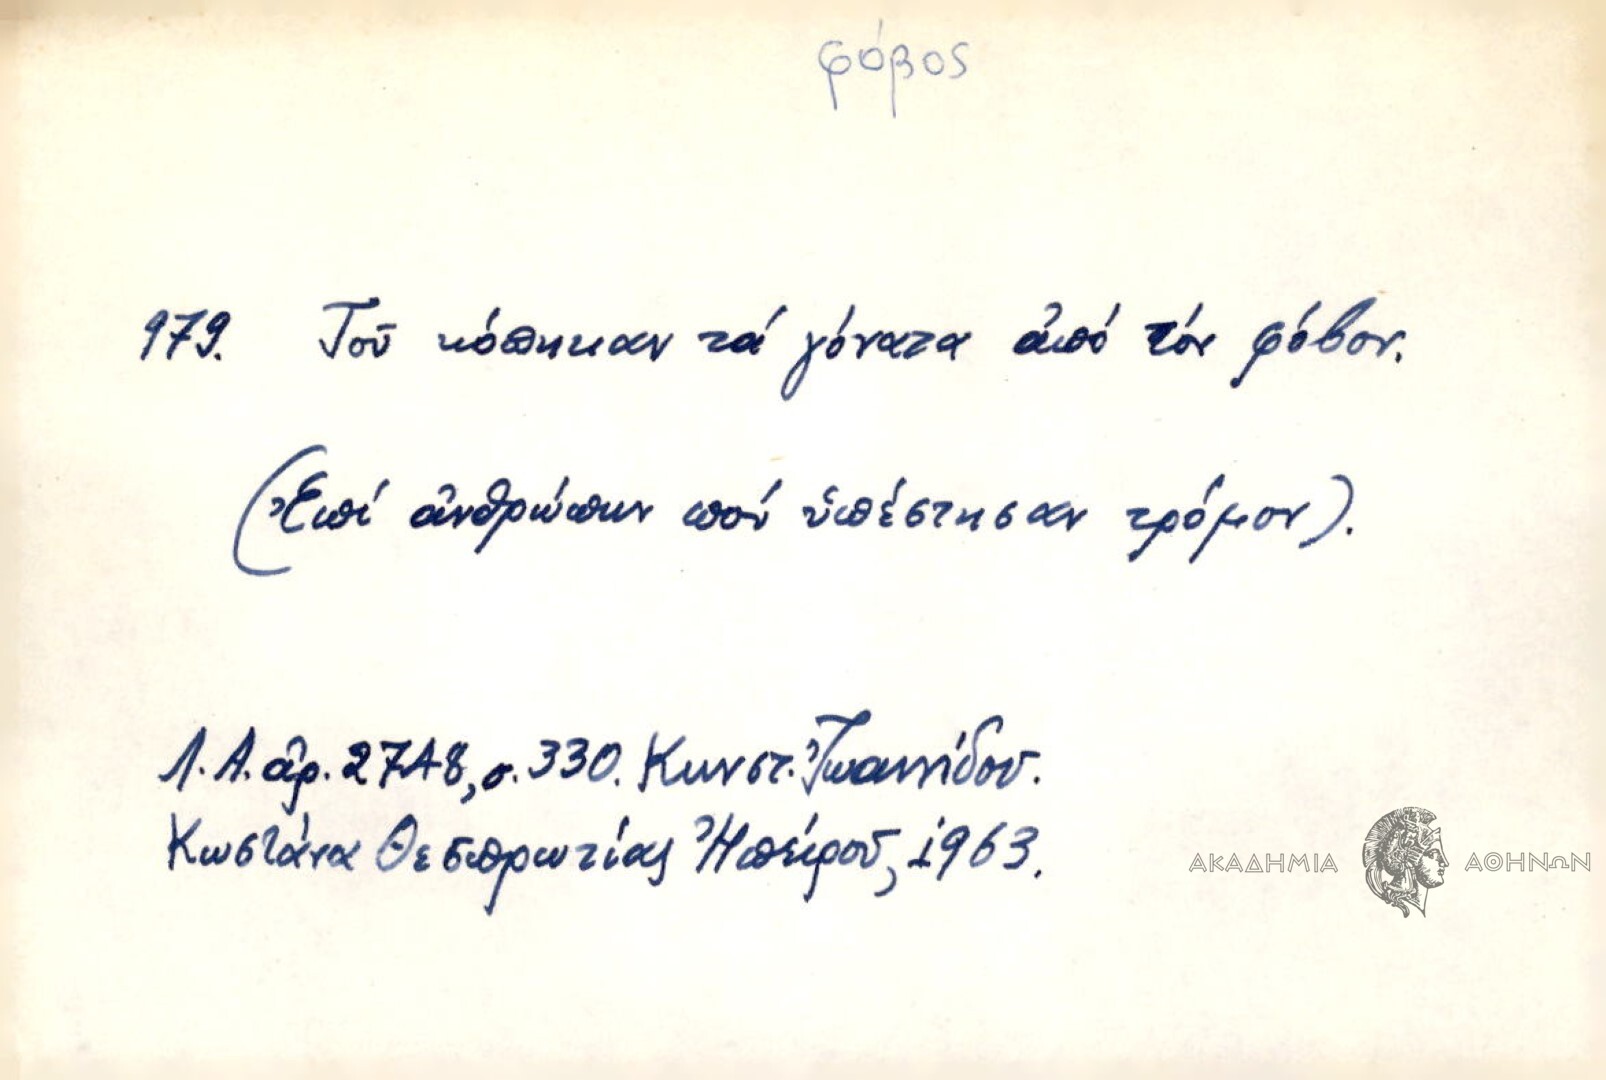 φόβος
979. Τοῦ κόπηκαν τά γόνατα ἀπό τόν φόβον.
(Ἐπί ἀνθρώπων πού ὑπέστησαν τρόμον).
Λ.Α. ἀρ. 2748, σ. 330. Κωνστ. Ἰωαννίδου.
Κωστάνα Θεσπρωτίας Ἠπείρου, 1963.
ΑΚΑΔΗΜΙΑ ΑΘΗΝΩΝ